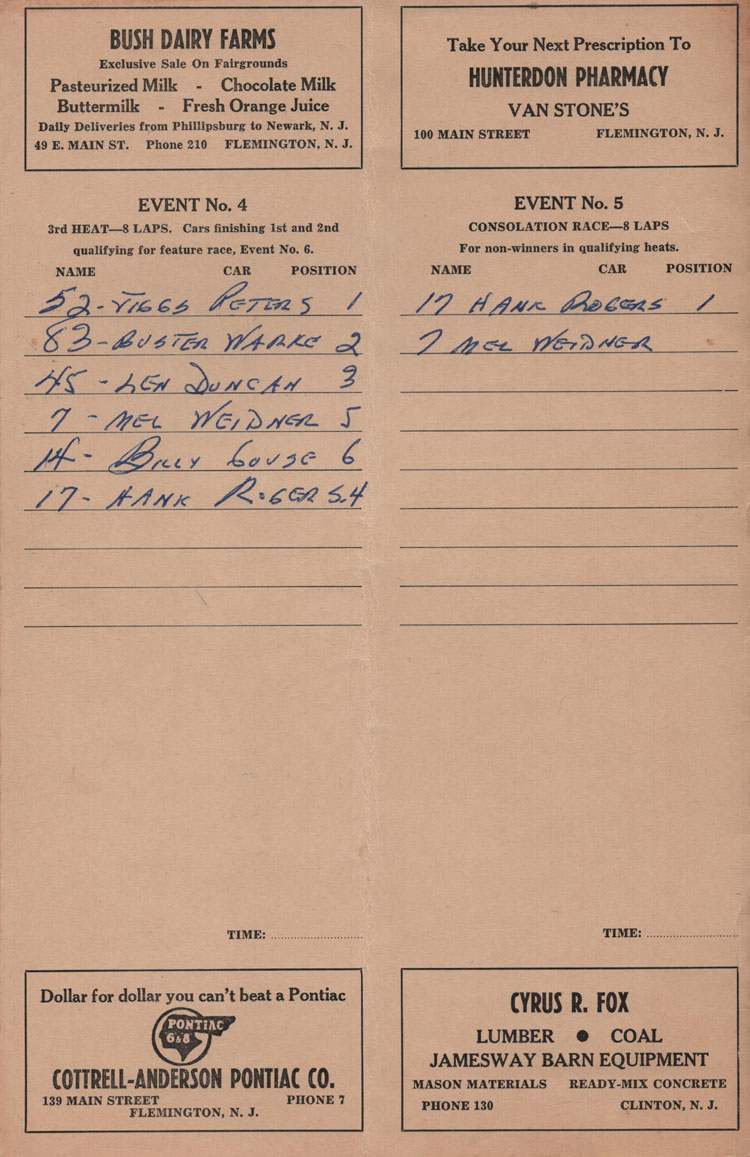 BUSH DAIRY FARMS
Exclusive Sale On Fairgrounds
Pasteurized Milk - Chocolate Milk
Buttermilk - Fresh Orange Juice
Daily Deliveries from Phillipsburg to Newark, N. J.
49 E. MAIN ST. Phone 210 FLEMINGTON, N. J.
EVENT No. 4
3rd HEAT—8 LAPS. Cars finishing 1st and 2nd
qualifying for feature race, Event No. 6.
NAME CAR POSITION
52 - TIGGS PETERS 1
83 - BUSTER WARKE 2
45 - LEN DUNCAN 3
7 - MEL WEIDNER 5
14 - BILLY GOUSE 6
17 - HANK ROGERS. 4
TIME:
Dollar for dollar you can't beat a Pontiac
PONTIAC
6&8
COTTRELL-ANDERSON PONTIAC CO.
139 MAIN STREET PHONE 7
FLEMINGTON, N. J.
Take Your Next Prescription To
HUNTERDON PHARMACY
VAN STONE'S
100 MAIN STREET FLEMINGTON, N. J.
EVENT No. 5
CONSOLATION RACE—8 LAPS
For non-winners in qualifying heats.
NAME CAR POSITION
17 HANK ROGERS 1
7 MEL WEIDNER
TIME:
CYRUS R. FOX
LUMBER ● COAL
JAMESWAY BARN EQUIPMENT
MASON MATERIALS READY-MIX CONCRETE
PHONE 130 CLINTON, N. J.